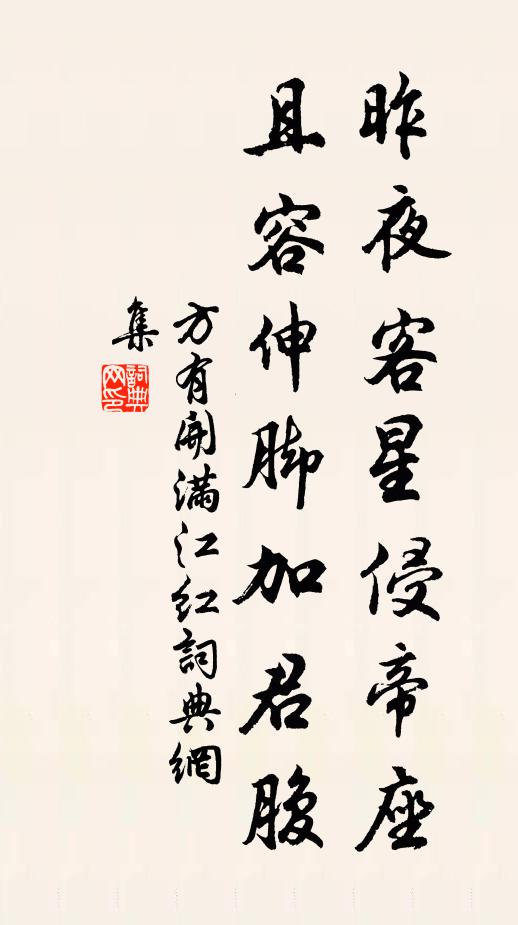 昨夜客星侵帝座
且容伸脚加君腹
方有開满江红詞典網
集
詞典
网印